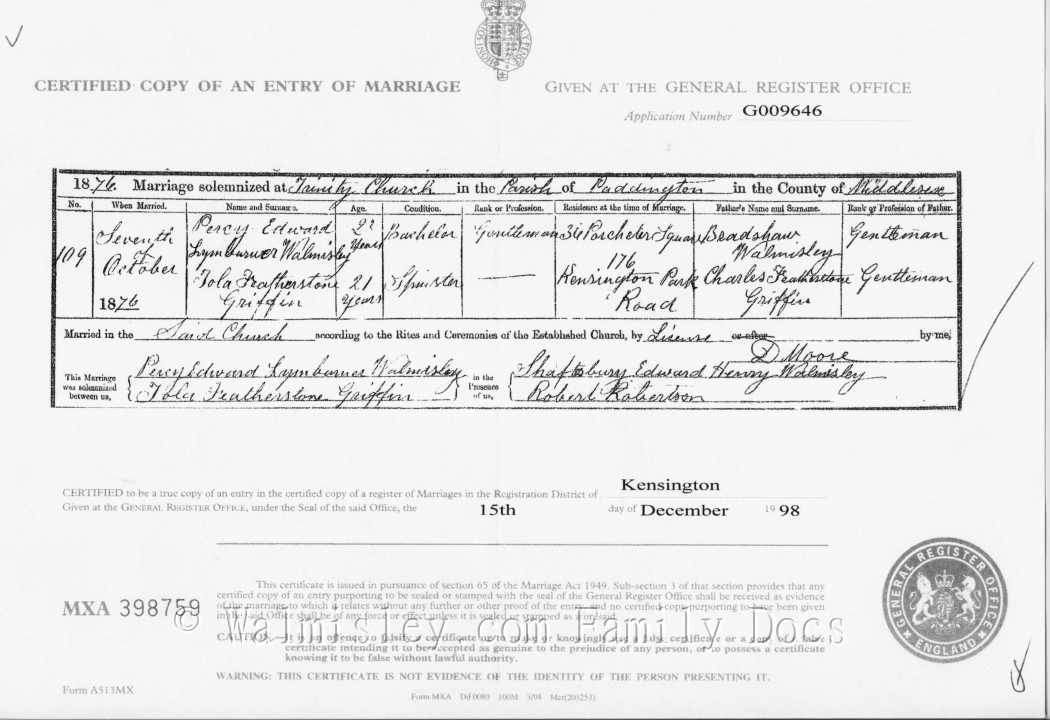 CERTIFIED COPY OF AN ENTRY OF MARRIAGE
GIVEN AT THE GENERAL REGISTER OFFICE
Application Number G009646
1876. Marriage solemnized at Trinity Church in the Parish of Paddington in the County of Middlesex
No. When Married. Name and Surname. Age. Condition. Rank or Profession. Residence at the time of Marriage. Father's Name and Surname. Rank or Profession of Father.
109 Seventh October 1876
Percy Edward Lymburner Walmisley 22 Years Bachelor Gentleman 34 Porchester Square Bradshaw Walmisley Gentleman
Iola Featherstone Griffin 21 Years Spinster — 176 Kensington Park Road Charles Featherstone Griffin Gentleman
Married in the Said Church according to the Rites and Ceremonies of the Established Church, by License or after by me,
D Moore
This Marriage was solemnized between us, Percy Edward Lymburner Walmisley in the Presence of us, Shaftsbury Edward Henry Walmisley
Iola Featherstone Griffin Robert Robertson
CERTIFIED to be a true copy of an entry in the certified copy of a register of Marriages in the Registration District of Kensington
Given at the GENERAL REGISTER OFFICE, under the Seal of the said Office, the 15th day of December 1998
This certificate is issued in pursuance of section 65 of the Marriage Act 1949. Sub-section 3 of that section provides that any
certified copy of an entry purporting to be sealed or stamped with the seal of the General Register Office shall be received as evidence
of the marriage to which it relates without any further or other proof of the entry, and no certified copy purporting to have been given
in the said Office shall be of any force or effect unless it is sealed or stamped as aforesaid.
MXA 398759
© Walmsley.com Family Docs
CAUTION: It is an offence to falsify a certificate or to make or knowingly use a false certificate or a copy of a false
certificate intending it to be accepted as genuine to the prejudice of any person, or to possess a certificate
knowing it to be false without lawful authority.
WARNING: THIS CERTIFICATE IS NOT EVIDENCE OF THE IDENTITY OF THE PERSON PRESENTING IT.
GENERAL REGISTER OFFICE
ENGLAND
Form A513MX
Form MXA Dd 0080 100M 3/98 Mcr(203253)